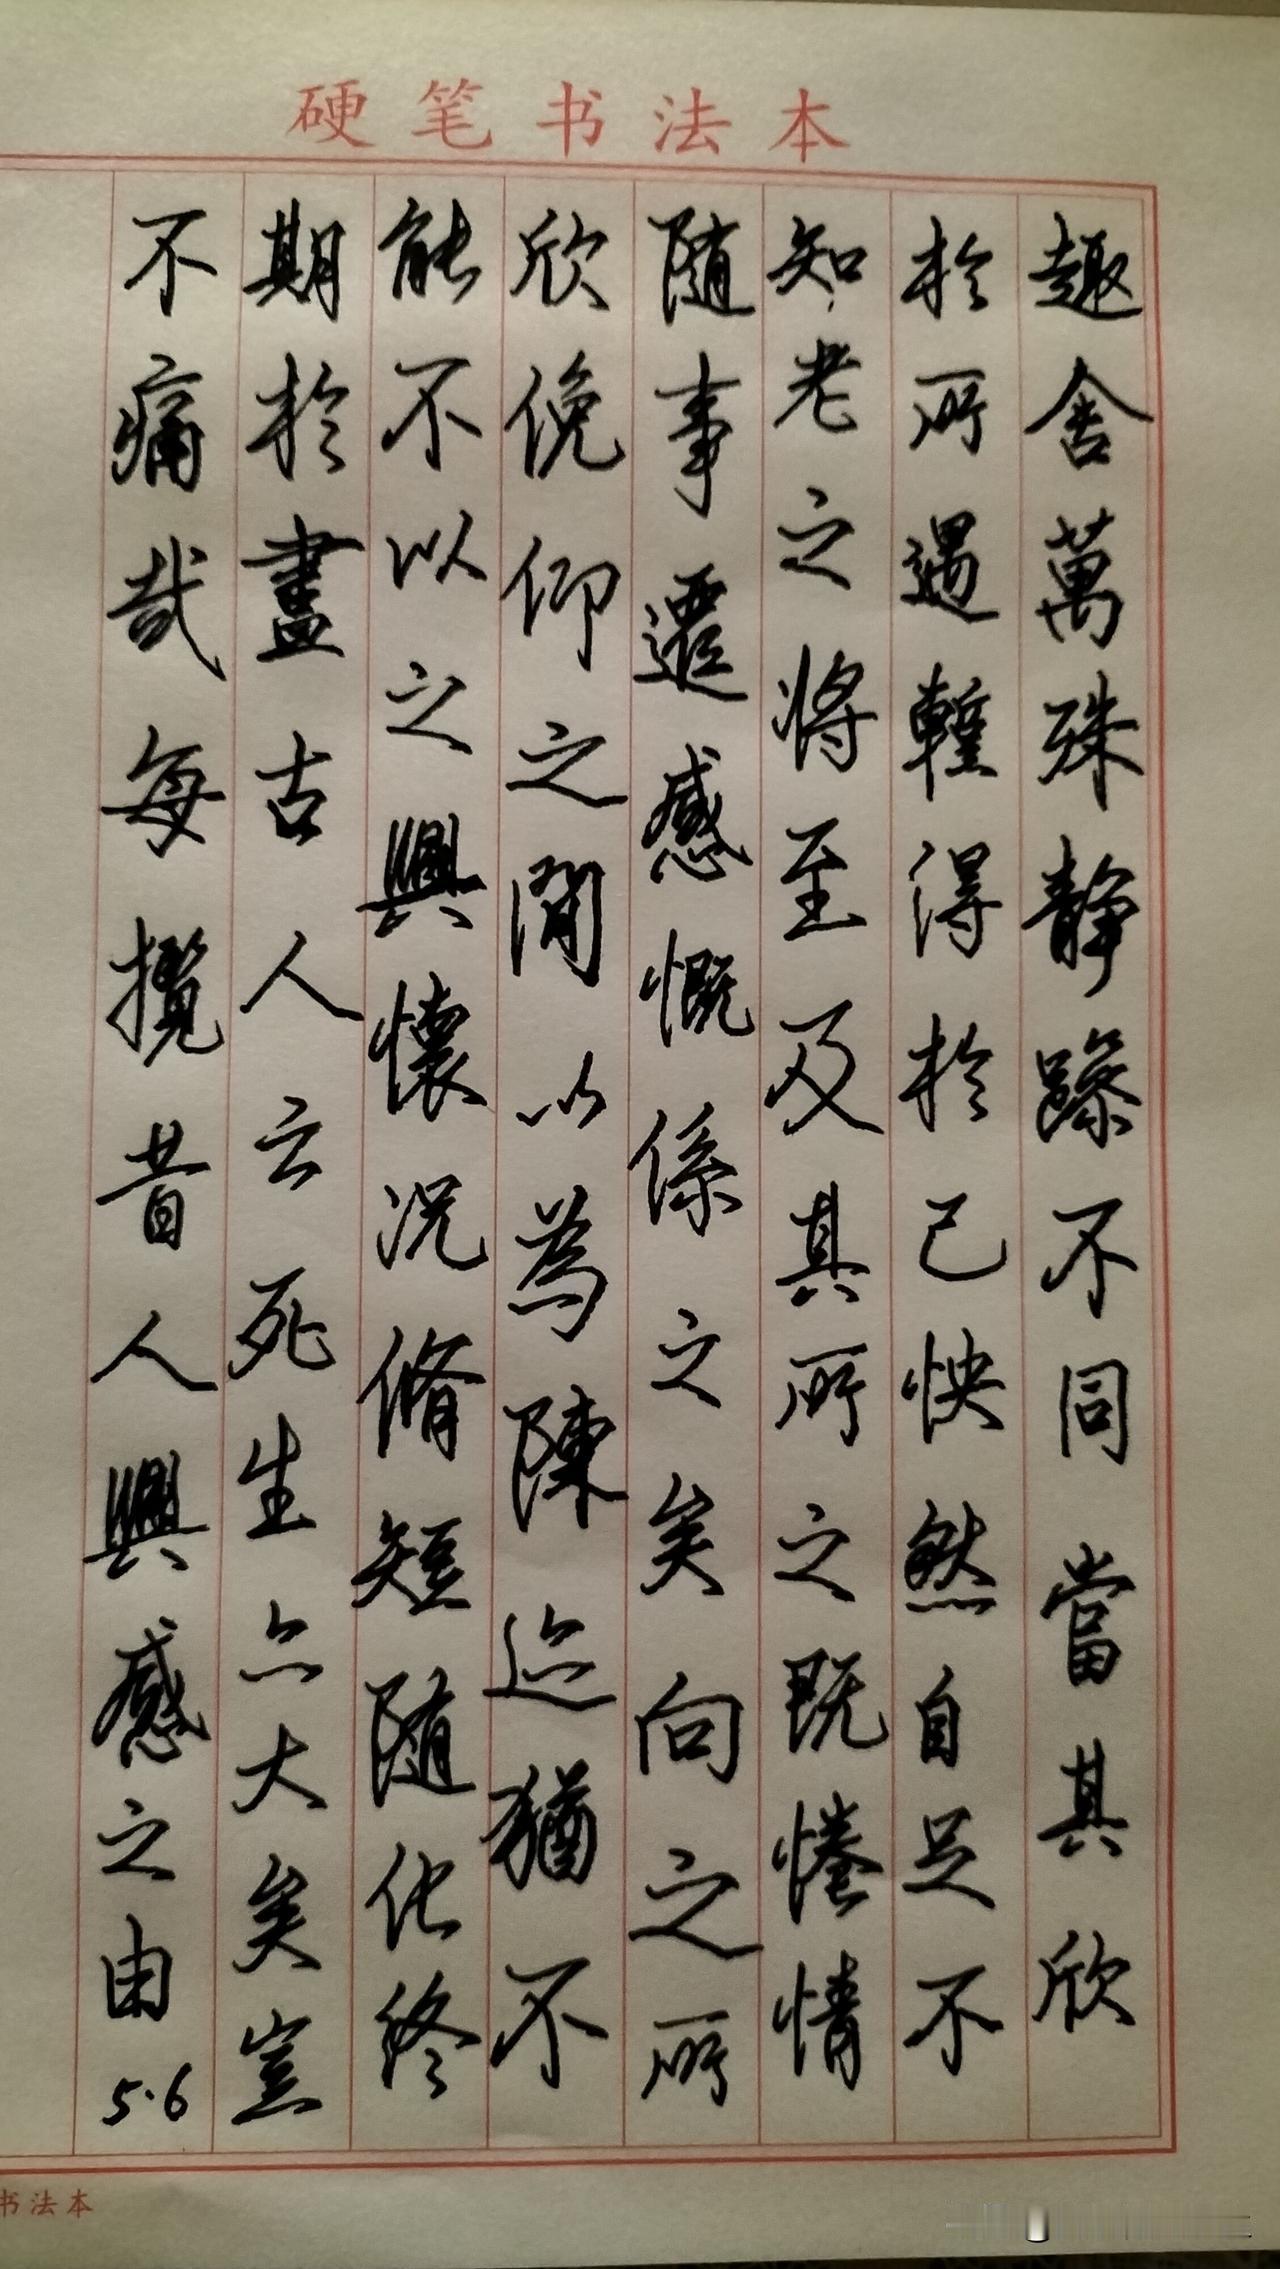 硬笔书法本
趣舍萬殊静躁不同當其欣
於所遇暫得於己怏然自足不
知老之将至及其所之既惓情
随事遷感慨係之矣向之所
欣俛仰之閒以為陳迹猶不
能不以之興懷况脩短随化終
期於盡古人云死生亦大矣豈
不痛哉每攬昔人興感之由
5.6
书法本